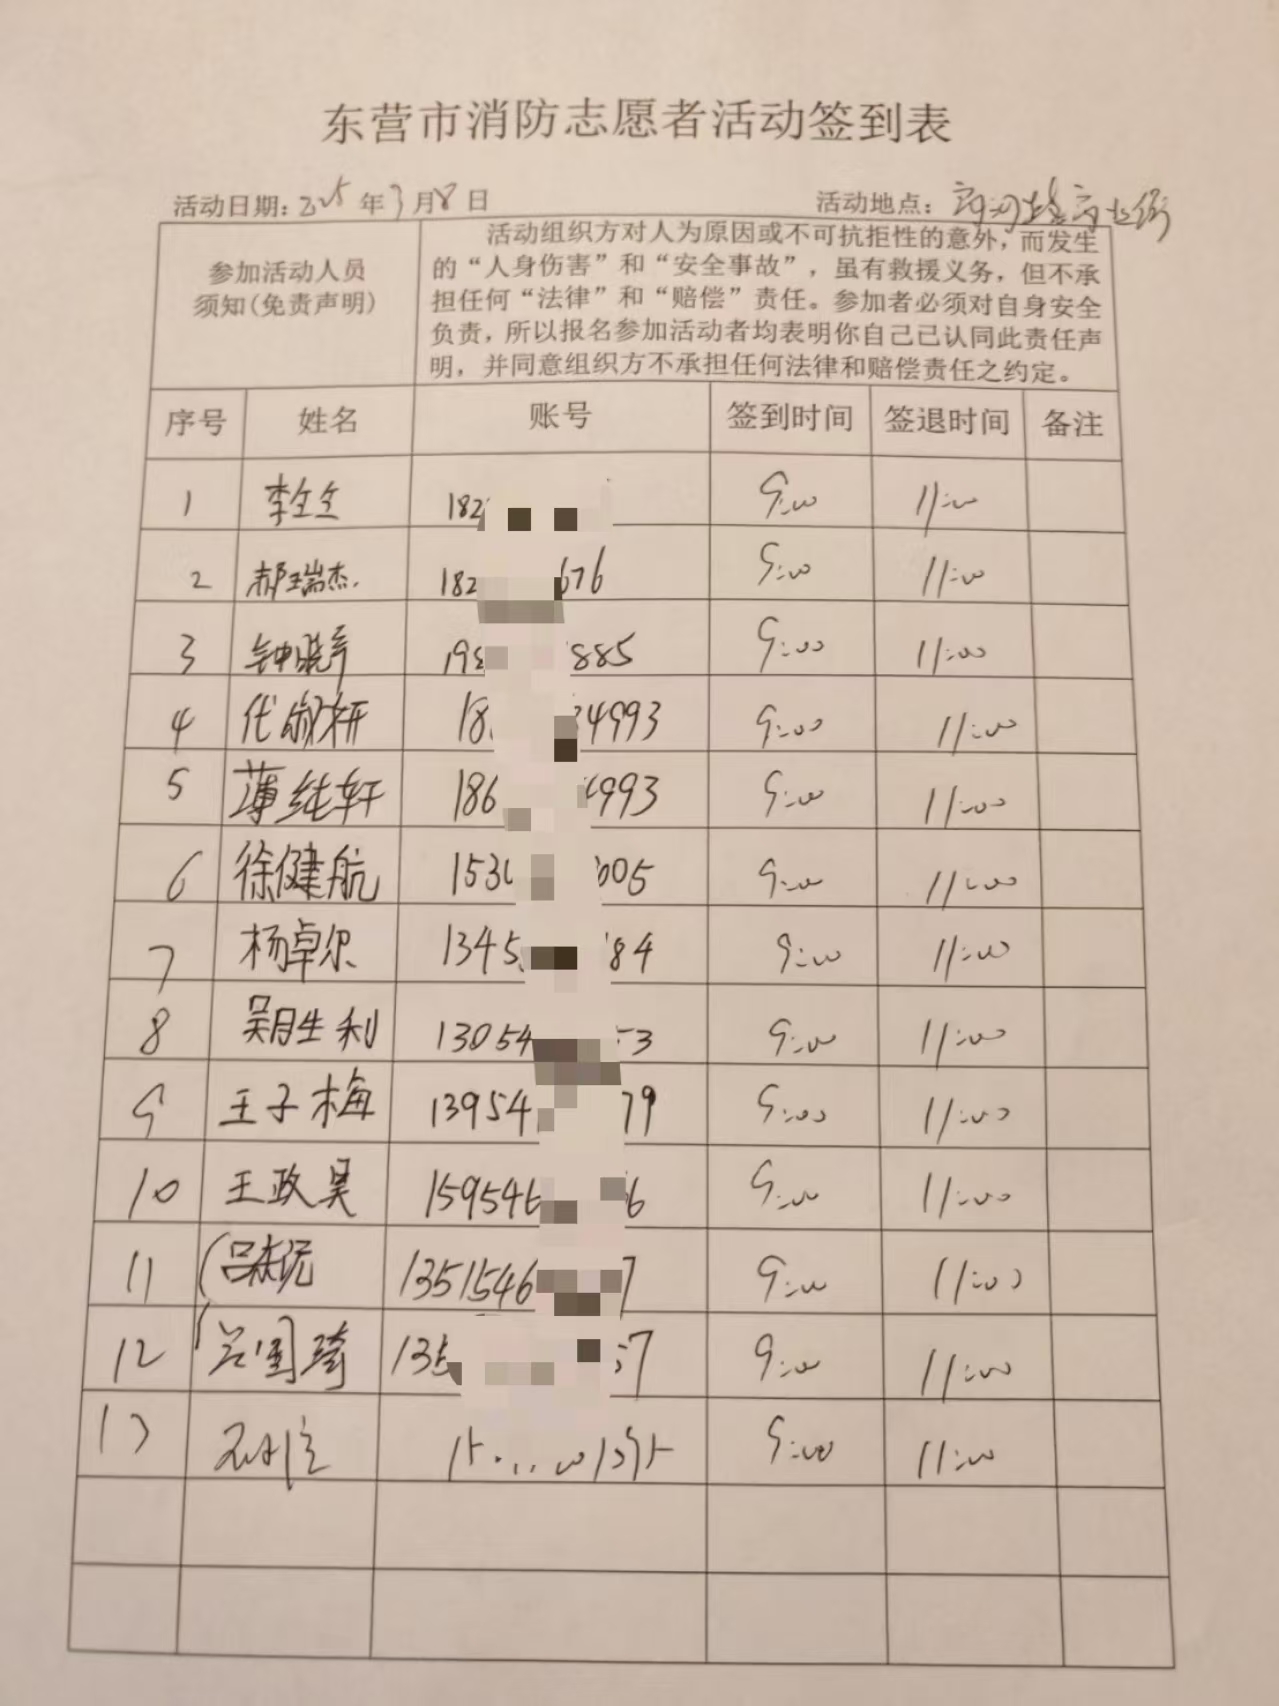 东营市消防志愿者活动签到表
活动日期：2025年3月8日 活动地点：
参加活动人员
须知(免责声明)
活动组织方对人为原因或不可抗拒性的意外，而发生
的“人身伤害”和“安全事故”，虽有救援义务，但不承
担任何“法律”和“赔偿”责任。参加者必须对自身安全
负责，所以报名参加活动者均表明你自己已认同此责任声
明，并同意组织方不承担任何法律和赔偿责任之约定。
序号 姓名 账号 签到时间 签退时间 备注
1 李全全 182 9:00 11:00
2 郝瑞杰. 182 676 9:00 11:00
3 钟晓 198 885 9:00 11:00
4 代淑妍 18 34993 9:00 11:00
5 薄纯轩 186 4993 9:00 11:00
6 徐健航 1530 005 9:00 11:00
7 杨卓尔 1345 84 9:00 11:00
8 吴胜利 13054 53 9:00 11:00
9 王子梅 13954 79 9:00 11:00
10 王政昊 159546 6 9:00 11:00
11 吕 1351546 7 9:00 11:00
12 国琦 135 57 9:00 11:00
13 15 1395 9:00 11:00